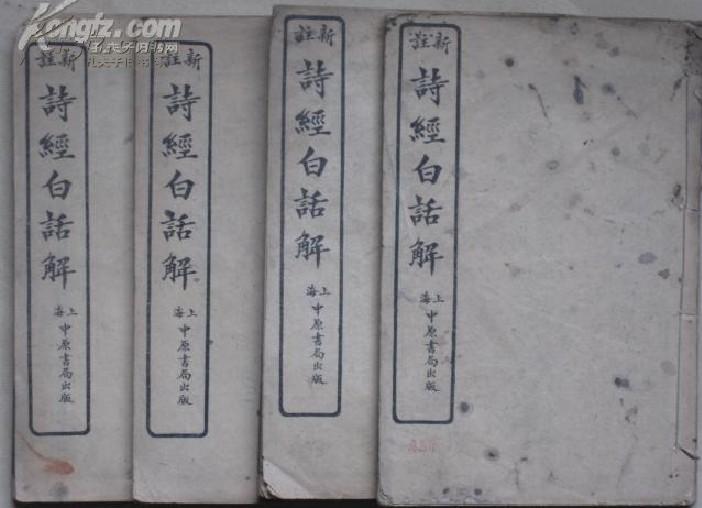 Kongfz.com
孔夫子旧书网
新註
詩經白話解
上海
中原書局出版
新註
詩經白話解
上海
中原書局出版
新註
詩經白話解
上海
中原書局出版
新註
詩經白話解
上海
中原書局出版